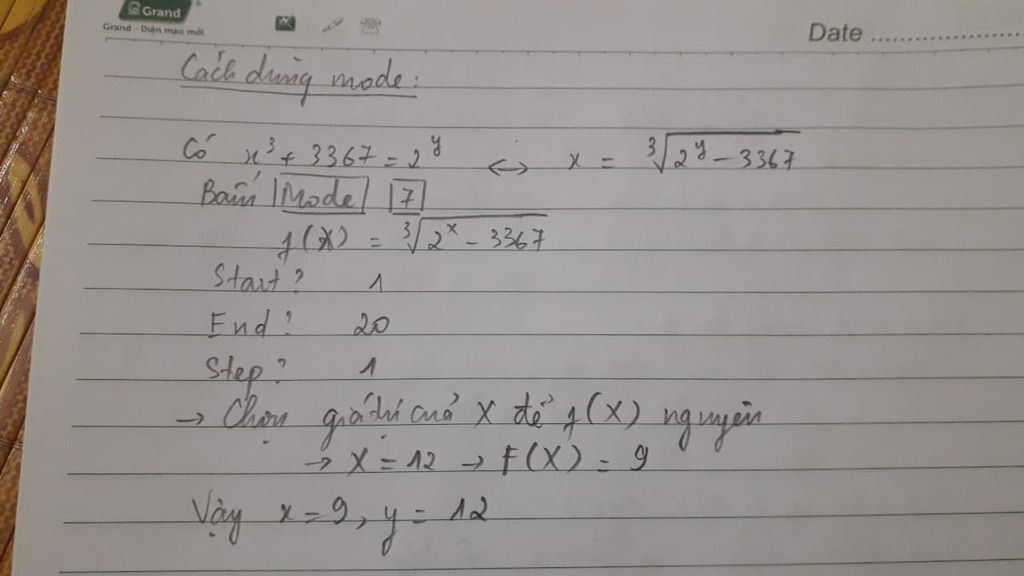 Grand
Grand - Diện mạo mới
Date
Cách dùng mode:
Có x³ + 3367 = 2^y ↔ x = ∛(2^y - 3367)
Bấm Mode 7
f(X) = ∛(2^x - 3367)
Start? 1
End? 20
Step? 1
→ Chọn giá trị của X để f(X) nguyên
→ X = 12 → F(X) = 9
Vậy x = 9, y = 12